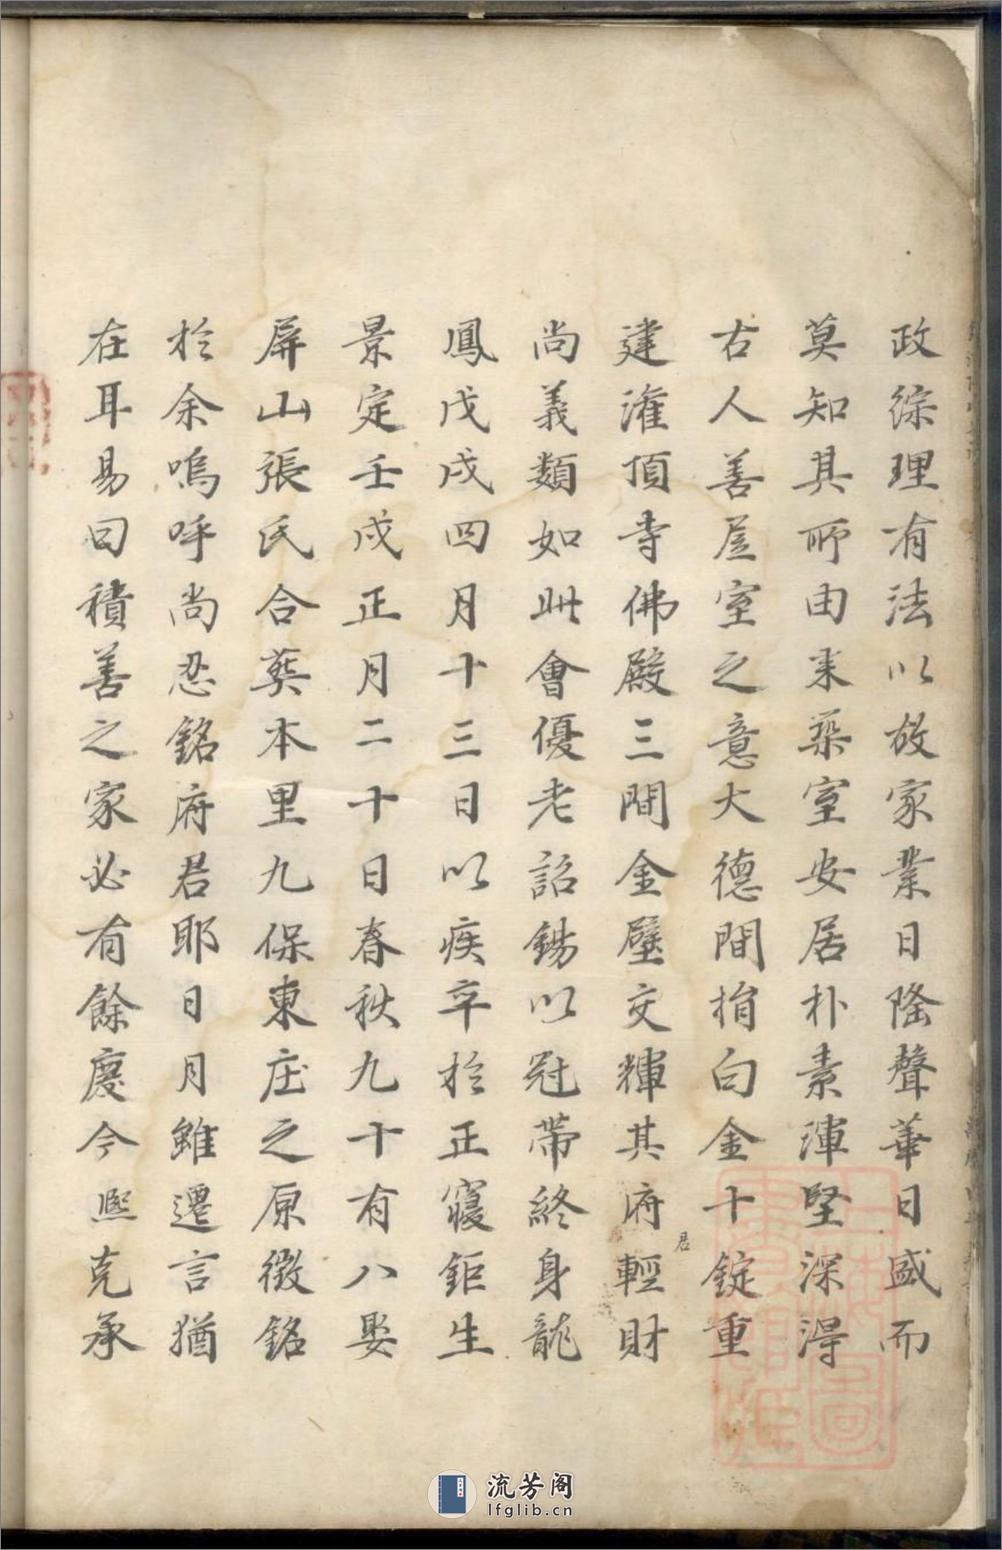 政綜理有法以故家業日隆聲華日盛而
莫知其所由来築室安居朴素渾堅深得
古人善居室之意大德間捐白金十錠重
建潅頂寺佛殿三間金壁交輝其府君輕財
尚義類如此會優老詔錫以冠帶終身龍
鳳戊戌四月十三日以疾卒於正寢鉅生
景定壬戌正月二十日春秋九十有八娶
屏山張氏合葬本里九保東庄之原徵銘
於余嗚呼尚忍銘府君耶日月雖遷言猶
在耳易曰積善之家必有餘慶今熈克承
流芳阁
lfglib.cn